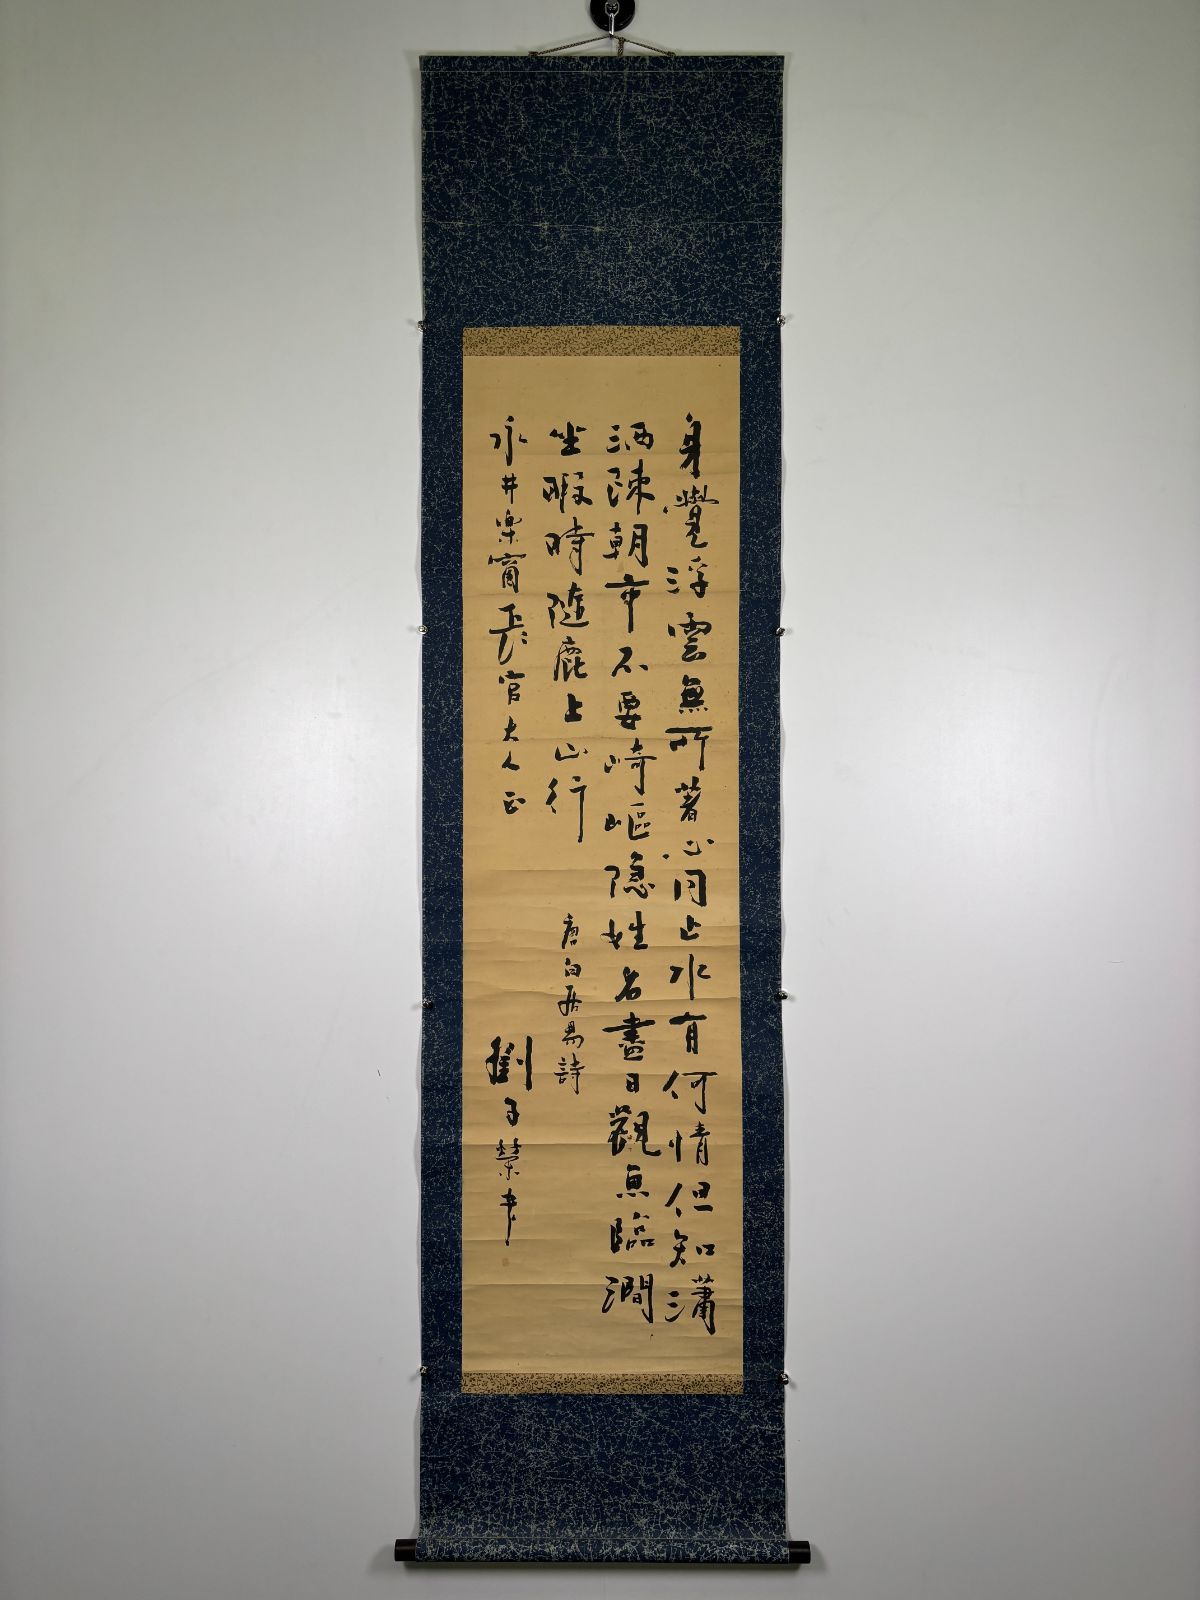 身覺浮雲無所著心同止水有何情但知瀟
洒疎朝市不要崎嶇隱姓名盡日觀魚臨澗
坐暇時隨鹿上山行 唐白居易詩
永井楽窗長官大人正 劉子榮書